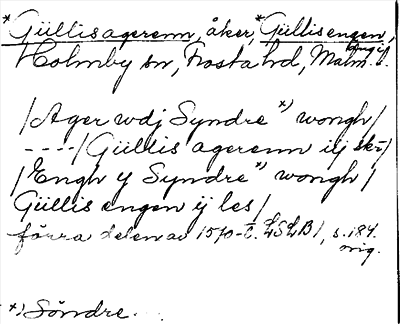 *Güllisagerenn, åker, *Güllisengen, äng i
Holmby sn, Frosta hd, Malm. l.
/Ager wdj Syndre *) wongh/
----/Güllis agerenn ilj sk:/
/Engh y Syndre *) wongh/
Güllis engen ij les/
förra delen av 1570-t. LSLB/, s. 184.
orig.
*) Söndre.